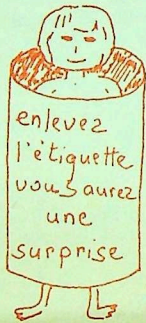 enlevez
l'étiquette
vous aurez
une
surprise